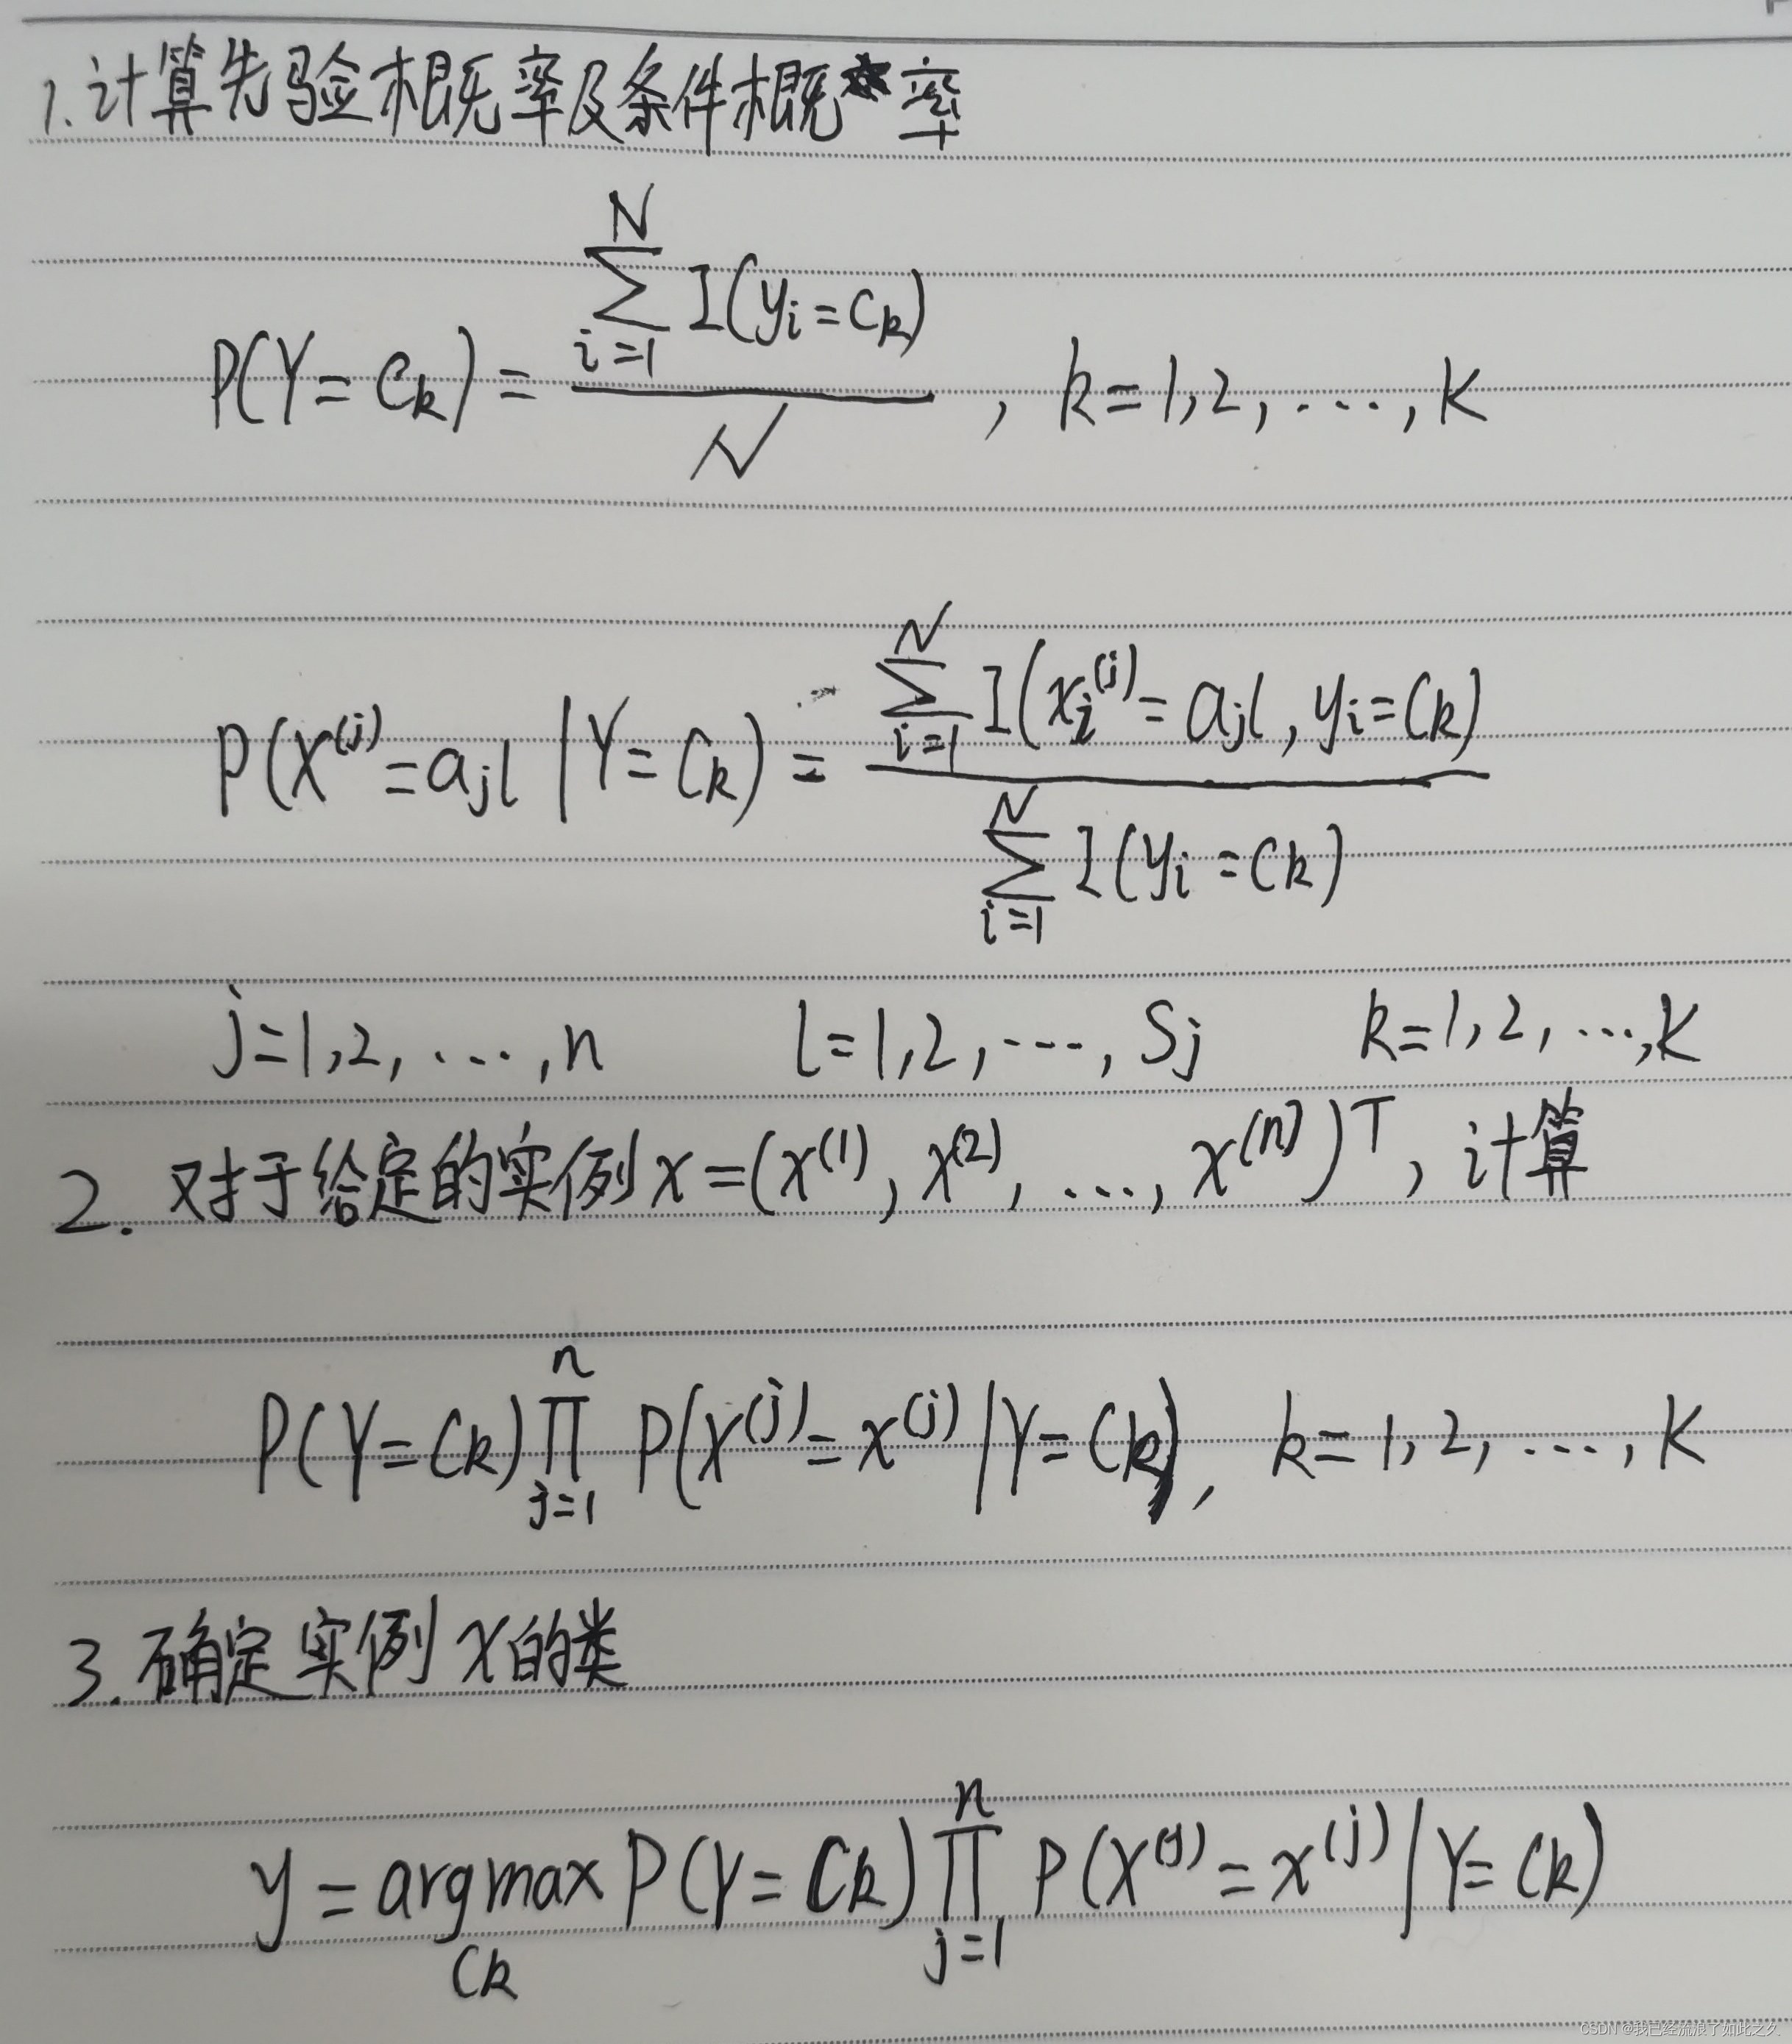 1.计算先验概率及条件概率
P(Y=Ck) = \frac{\sum_{i=1}^{N} I(yi=Ck)}{N}, k=1,2,....,K
P(X^{(j)}=ajl|Y=Ck) = \frac{\sum_{i=1}^{N} I(xi^{(j)}=ajl, yi=Ck)}{\sum_{i=1}^{N} I(yi=Ck)}
j=1,2,....,n l=1,2,...,Sj k=1,2,...,K
2.对于给定的实例x=(x^{(1)}, x^{(2)}, ..., x^{(n)})^T, 计算
P(Y=Ck) \prod_{j=1}^{n} P(X^{(j)}=x^{(j)}|Y=Ck), k=1,2,....,K
3.确定实例x的类
y = argmax_{Ck} P(Y=Ck) \prod_{j=1}^{n} P(X^{(j)}=x^{(j)}|Y=Ck)
CSDN @我已经流浪了如此之久